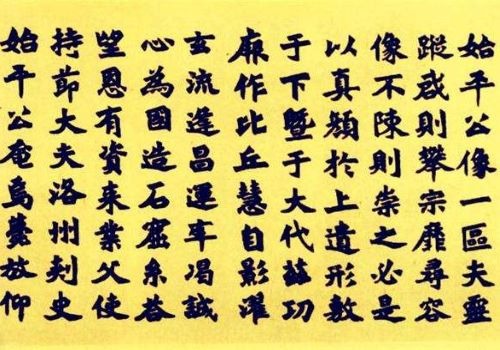 始平公像一區夫靈
蹤惑則攀宗靡尋容
像不陳則崇之必是
以真顏於上遺形敷
于下暨于大代茲功
厥作比丘慧自影濯
玄流逢昌運率渴誠
心為國造石窟糸荅
望恩有資来業父使
持節大夫洛州刾史
始平公奄焉薨放仰